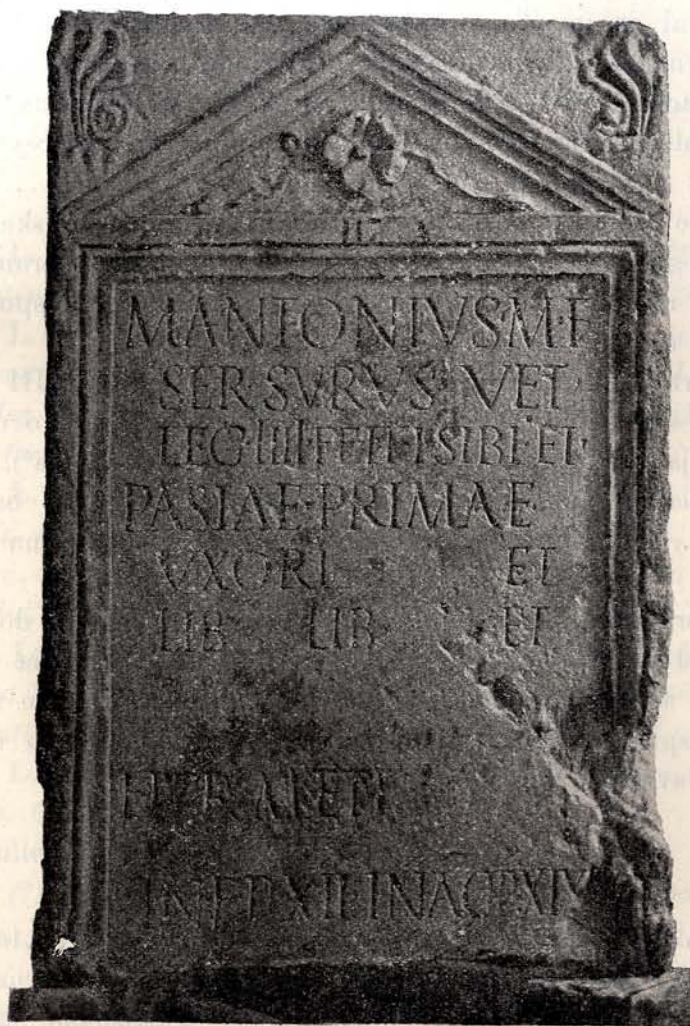 M·ANTONIVS·M·F
SER·SVRVS·VET·
LEG·IIII·F·F·T·F·I·SIBI·ET·
PASIAE·PRIMAE
VXORI ET
LIB LIB ET
IN·F·P·XII·IN·AG·P·XIV